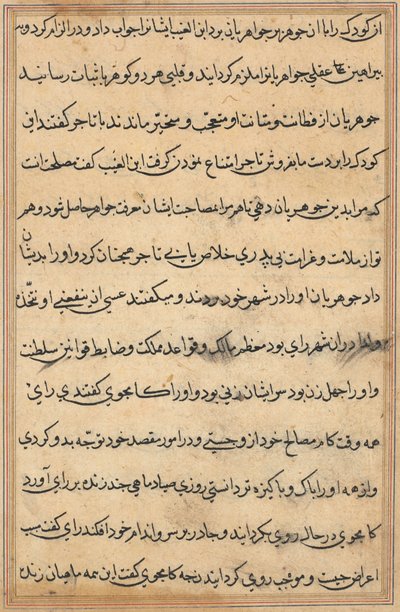 از کودک را با آن جوهر بر جواهریان برد ابن الغیب ایشانرا جواب داد و در الزام کردن
ببراهین عقلی جواهریانرا ملزم کردانید و قلبی هر دو کوهر باثبات رسانید
جوهریان از فطانت او متعجب و متحیر ماندند با تاجر کفتند این
کودک را بدست ما بفروش تاجر امتناع نمودن کرفت ابن الغیب کفت مصلحت انست
که مرا بدین جوهریان دهی تا هم مرا بمصاحبت ایشان معرفت جواهر حاصل شود و هم
تو از ملامت و غرامت بی پدری خلاص یابی تاجر همچنان کرد و او را بدیشان
داد جوهریان او را در شهر خود بردند و میکفتند عسی ان ینفعنا او نتخذه
ولدا در آن شهر رای بود معظم ممالک و قواعد مملکت و ضابط قوانین سلطنت
و او را چهل زن بود سر ایشان زنی بود او را کامجوی کفتندی رای
همه وقت کام مصالح خود از و جستی و در امور مقصد خود توجه بدو کردی
و از همه او را پاک و پاکیزه تر دانستی روزی صیاد ماهی چند زنده بر رای آورد
کامجوی در حال روی بکردانید و چادر بر سر و اندام خود افکند رای کفت سبب
اعراض چیست و موجب روی کردانیدن چه کامجوی کفت این همه ماهیان زنده